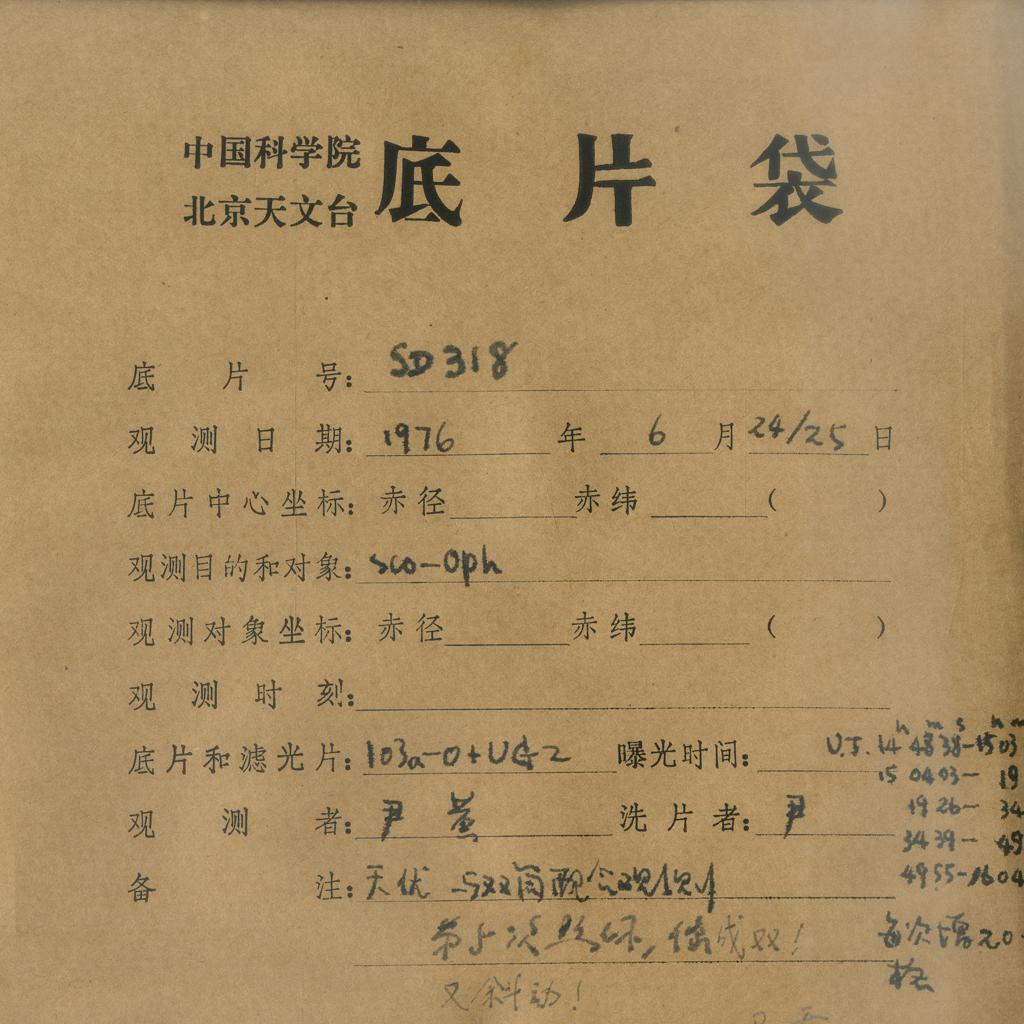 中国科学院
北京天文台
底片袋
底片号：SD318
观测日期：1976年6月24/25日
底片中心坐标：赤径 赤纬 （ ）
观测目的和对象：Sco-Oph
观测对象坐标：赤径 赤纬 （ ）
观测时刻：
底片和滤光片：103a-O+UG2 曝光时间：
U.T. 14h 48m 38s-15h 03m
15 04 03- 19
19 26- 34
34 39- 49
49 55-16 04
观测者：尹 黄 洗片者：尹
备注：天优 与双筒配合观测
第5次
成双！
每次 20
又斜动！